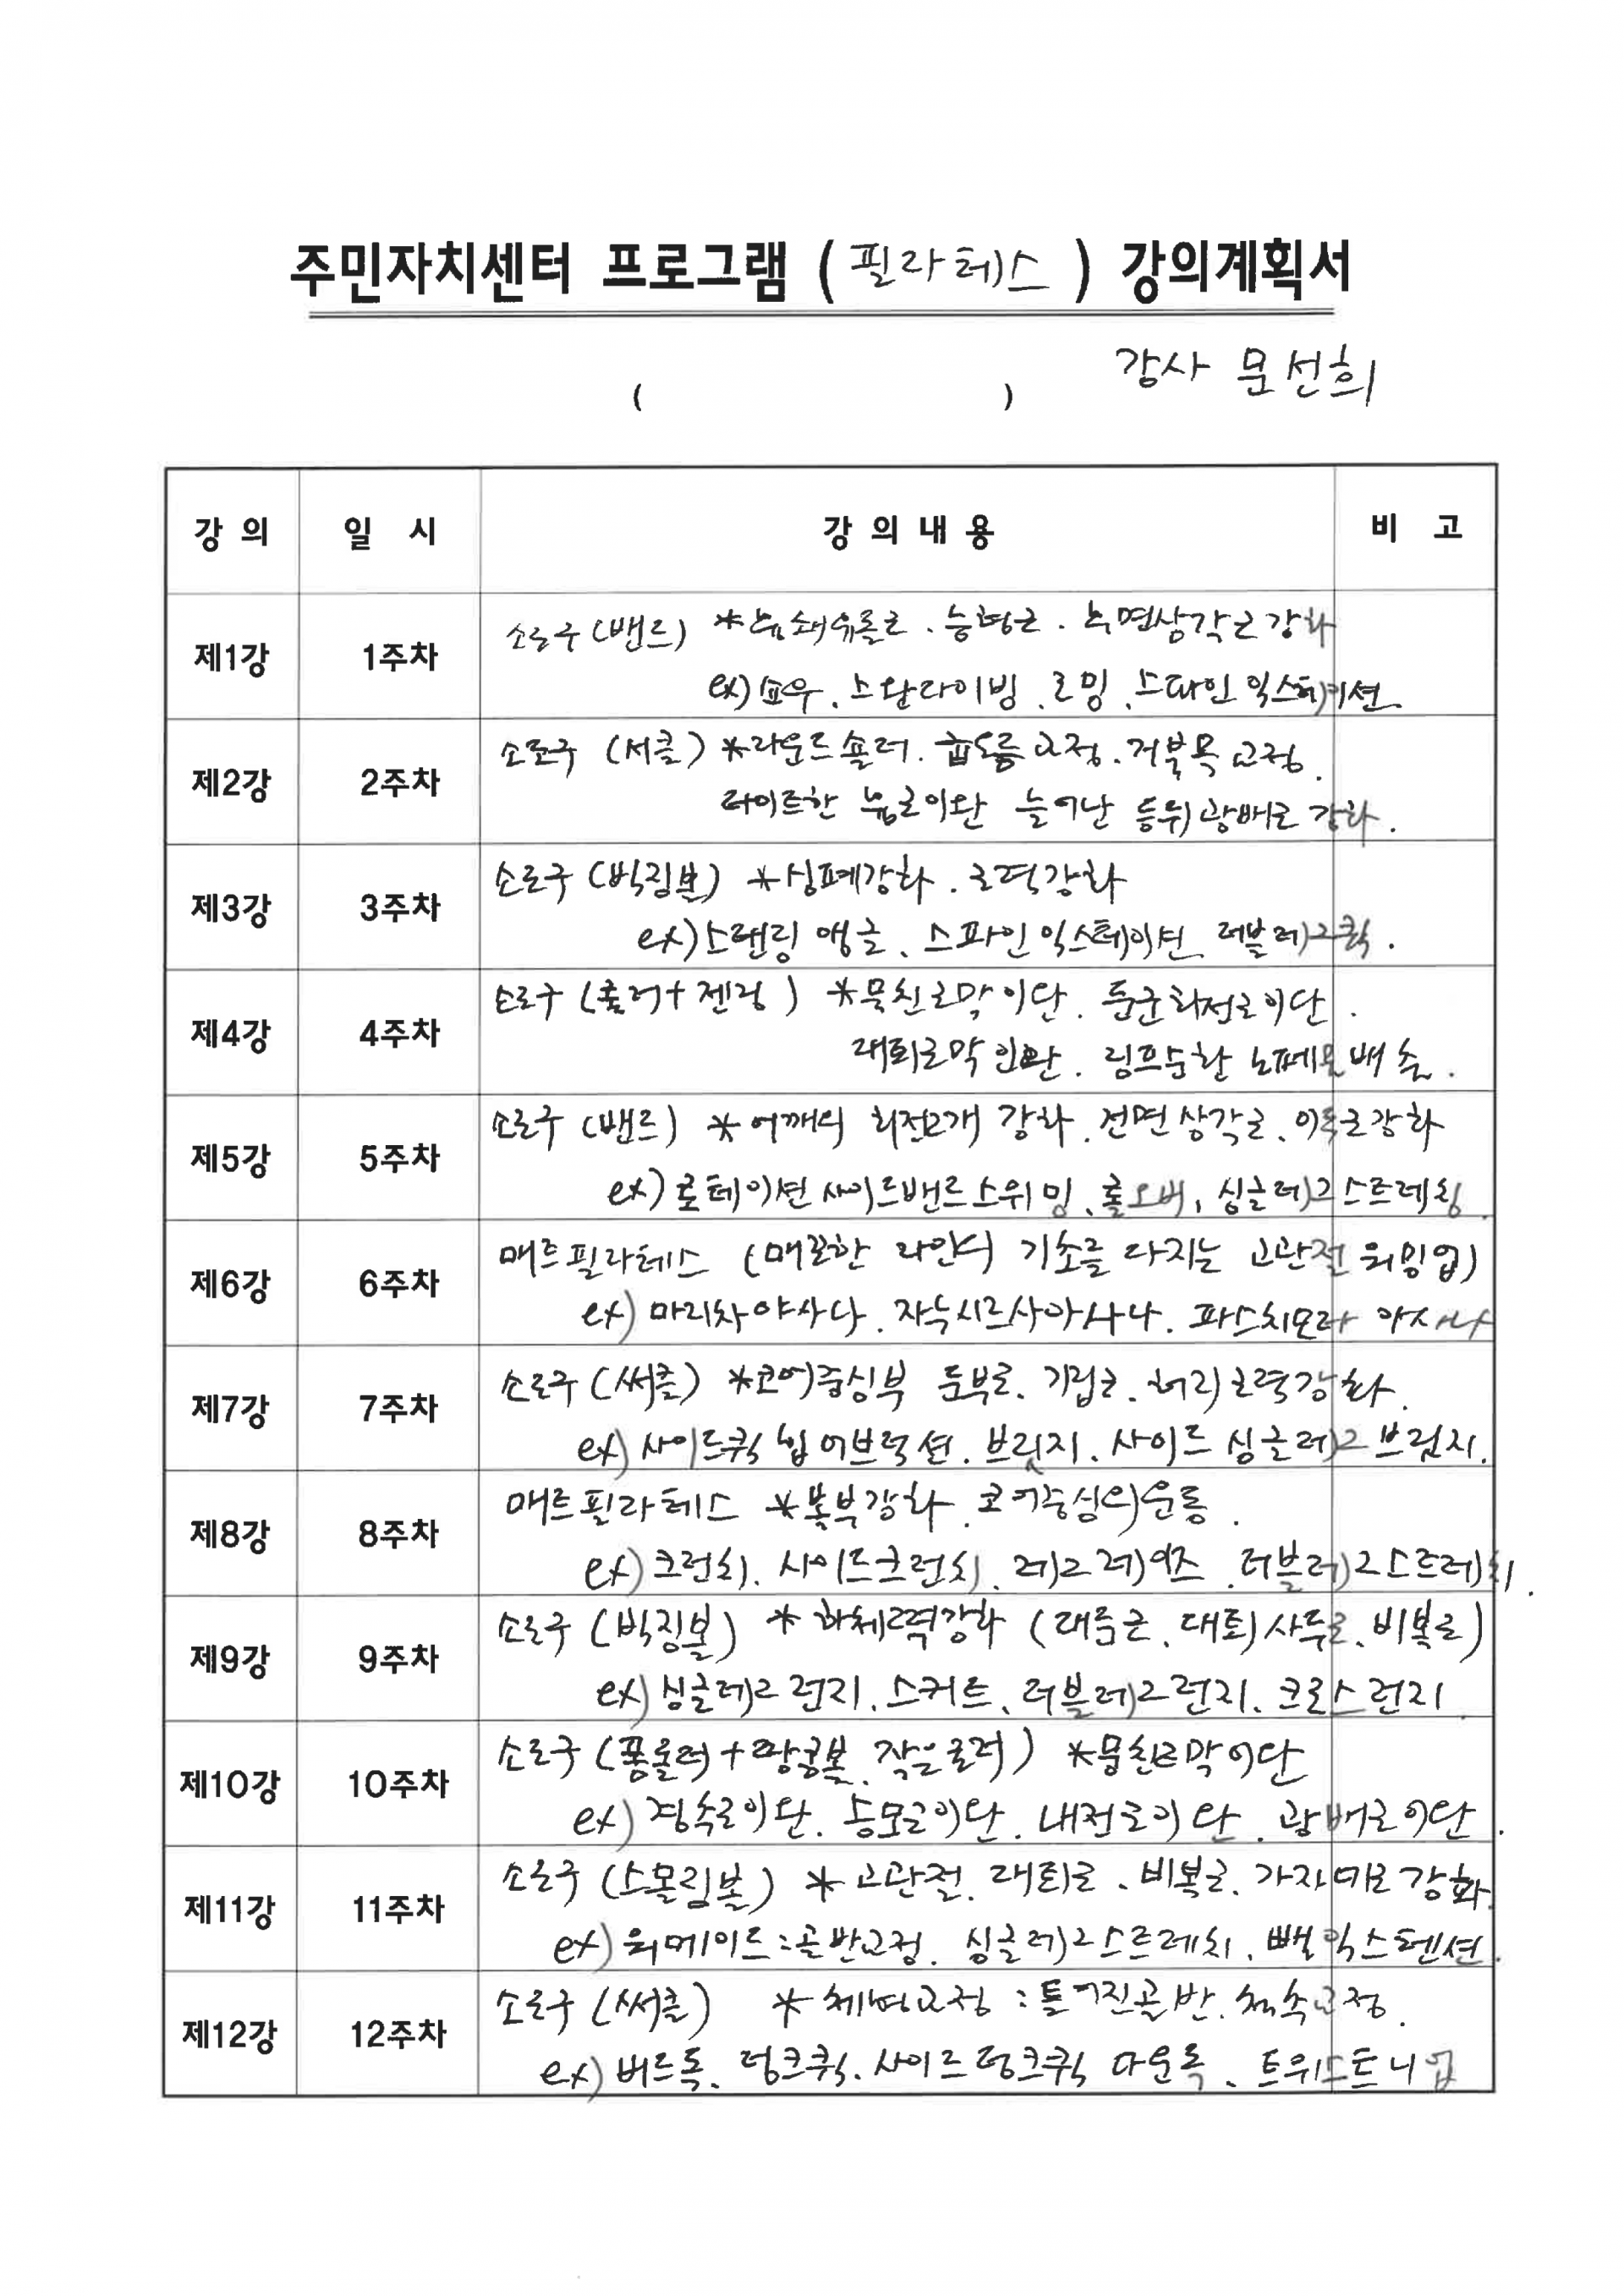 주민자치센터 프로그램 ( 필라테스 ) 강의계획서
강사 문선희
( )
강 의 일 시 강 의 내 용 비 고
제1강 1주차 소도구 (밴드) * 흉쇄유돌근. 능형근. 후면삼각근 강화
ex) 쏘우. 스완다이빙. 로밍. 스파인 익스텐션
제2강 2주차 소도구 (서클) * 라운드숄더. 교정. 거북목 교정.
타이트한 흉근이완 늘어난 등뒤 광배근 강화.
제3강 3주차 소도구 (빅짐볼) * 심폐강화. 근력강화
ex) 스탠딩 앵클. 스파인 익스테이션. 더블레그킥.
제4강 4주차 소도구 (폼롤러+ ) * 뭉친근막이완. 둔근회전근이완.
대퇴근막이완. 림프순환 노폐물배출.
제5강 5주차 소도구 (밴드) * 어깨의 회전근개 강화. 전면삼각근. 이두근강화
ex) 로테이션 사이드밴드 스위밍. 롤오버. 싱글레그스트레칭.
제6강 6주차 매트필라테스 (매끈한 라인의 기초를 다지는 고관절 워밍업)
ex) 마리차야사나. 자누시르사아사나. 파스치모타 아사나
제7강 7주차 소도구 (써클) * 코어중심부 둔부근. 기립근. 허리근력강화.
ex) 사이드킥 힙 어브덕션. 브릿지. 사이드 싱글레그 브릿지.
제8강 8주차 매트필라테스 * 복부강화. 코어중심의운동.
ex) 크런치. 사이드크런치. 레그레이즈. 더블레그스트레치.
제9강 9주차 소도구 (빅짐볼) * 하체근력강화 (대둔근. 대퇴사두근. 비복근)
ex) 싱글레그 런지. 스쿼트. 더블레그런지. 크로스런지.
제10강 10주차 소도구 (폼롤러+땅콩볼. 작은롤러) * 뭉친근막이완
ex) 경속근이완. 승모근이완. 내전근이완. 광배근이완.
제11강 11주차 소도구 (스몰짐볼) * 고관절. 대퇴근. 비복근. 가자미근 강화.
ex) 머메이드:골반교정. 싱글레그스트레치. 빽익스텐션.
제12강 12주차 소도구 (써클) * 체형교정 : 틀어진골반. 척추교정.
ex) 버드독. 덩크킥. 사이드덩크킥 다운독. 트위스트니업